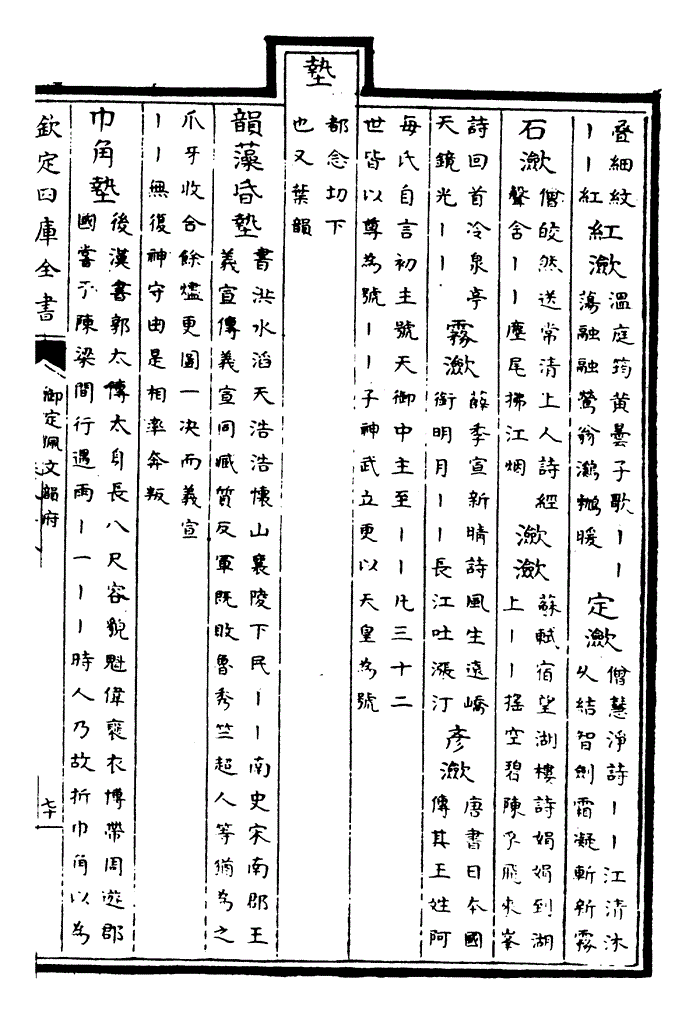 疊細紋
丨丨紅
紅瀲
溫庭筠黃曇子歌丨丨
蕩融融鶯翁鸂鶒暖
定瀲
僧慧淨詩丨丨江清沐
久結智劍霜凝斬新霧
石瀲
僧皎然送常清上人詩經
聲含丨丨塵尾拂江烟
瀲瀲
蘇軾宿望湖樓詩娟娟到湖
上丨丨搖空碧陳孚飛來峯
詩回首冷泉亭
天鏡光丨丨
霧瀲
薛季宣新晴詩風生遠嶠
銜明月丨丨長江吐漲汀
彥瀲
唐書日本國
傳其王姓阿
每氏自言初主號天御中主至丨丨凡三十二
世皆以尊為號丨丨子神武立更以天皇為號
墊
都念切下
也又葉韻
韻藻昏墊
書洪水滔天浩浩懷山襄陵下民丨丨南史宋南郡王
義宣傳義宣同臧質反軍既敗魯秀竺超人等猶為之
爪牙收合餘燼更圖一决而義宣
丨丨無復神守由是相率奔叛
巾角墊
後漢書郭太傳太身長八尺容貌魁偉褒衣博帶周遊郡
國嘗于陳梁間行遇雨丨一丨丨時人乃故折巾角以為
欽定四庫全書
御定佩文韻府
七十